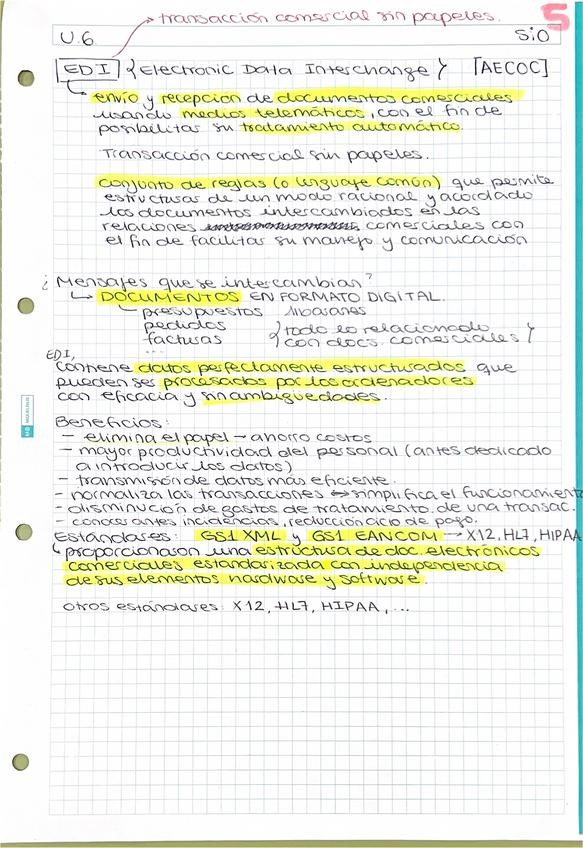 transacción comercial sin papeles.
5
U.6
SiO
EDI {Electronic Data Interchange} [AECOC]
envío y recepción de documentos comerciales
usando medios telemáticos, con el fin de
posibilitar su tratamiento automático.
Transacción comercial sin papeles.
Conjunto de reglas (o lenguaje común) que permite
estructuras de un modo racional y acordado
los documentos intercambiados en las
relaciones comerciales con
el fin de facilitar su manejo y comunicación
¿Mensajes que se intercambian?
DOCUMENTOS EN FORMATO DIGITAL.
presupuestos albaranes
pedidos {todo lo relacionado
facturas con docs. comerciales}
...
EDI,
Contiene datos perfectamente estructurados que
pueden ser procesados por los ordenadores
con eficacia y sin ambiguedades.
Beneficios:
- elimina el papel → ahorro costos
- mayor productividad del personal (antes dedicado
a introducir los datos)
- transmisión de datos más eficiente.
- normaliza las transacciones ↔ simplifica el funcionamient
- disminución de gastos de tratamiento de una transac.
- conocer antes incidencias, reducción ciclo de pago.
Estándares: GS1 XML y GS1 EANCOM → X12, HL7, HIPAA
proporcionan una estructura de doc. electrónicos
comerciales estandarizada con independencia
de sus elementos hardware y software.
otros estándares: X12, HL7, HIPAA, ...